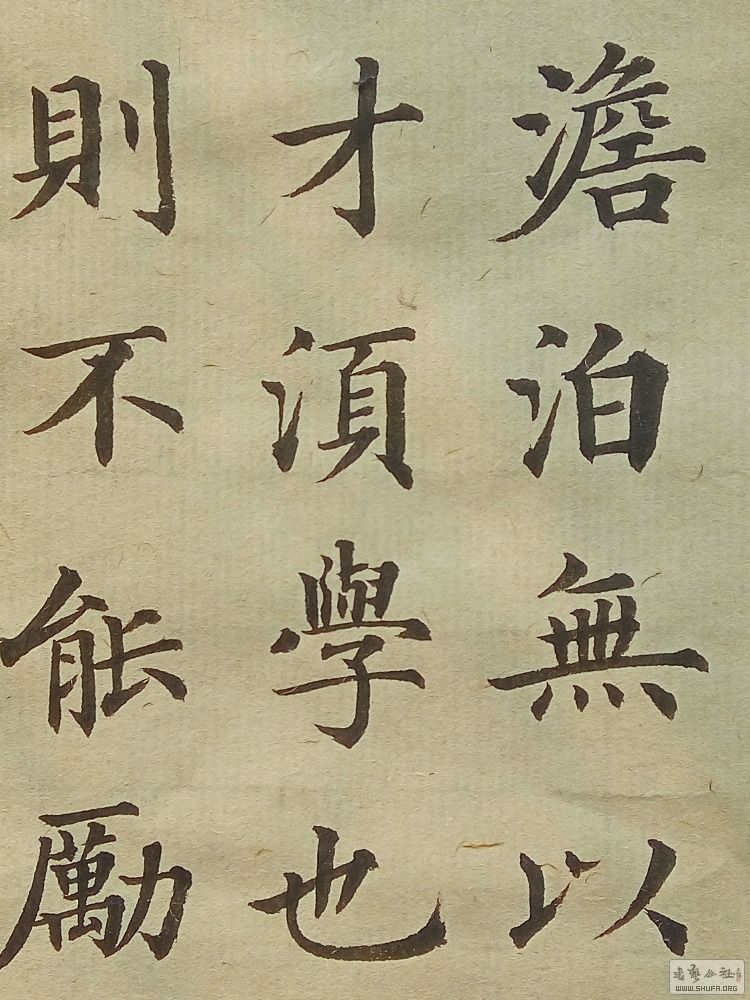 澹泊無以
才須學也
則不能勵
书艺公社
WWW.SHUFA.ORG